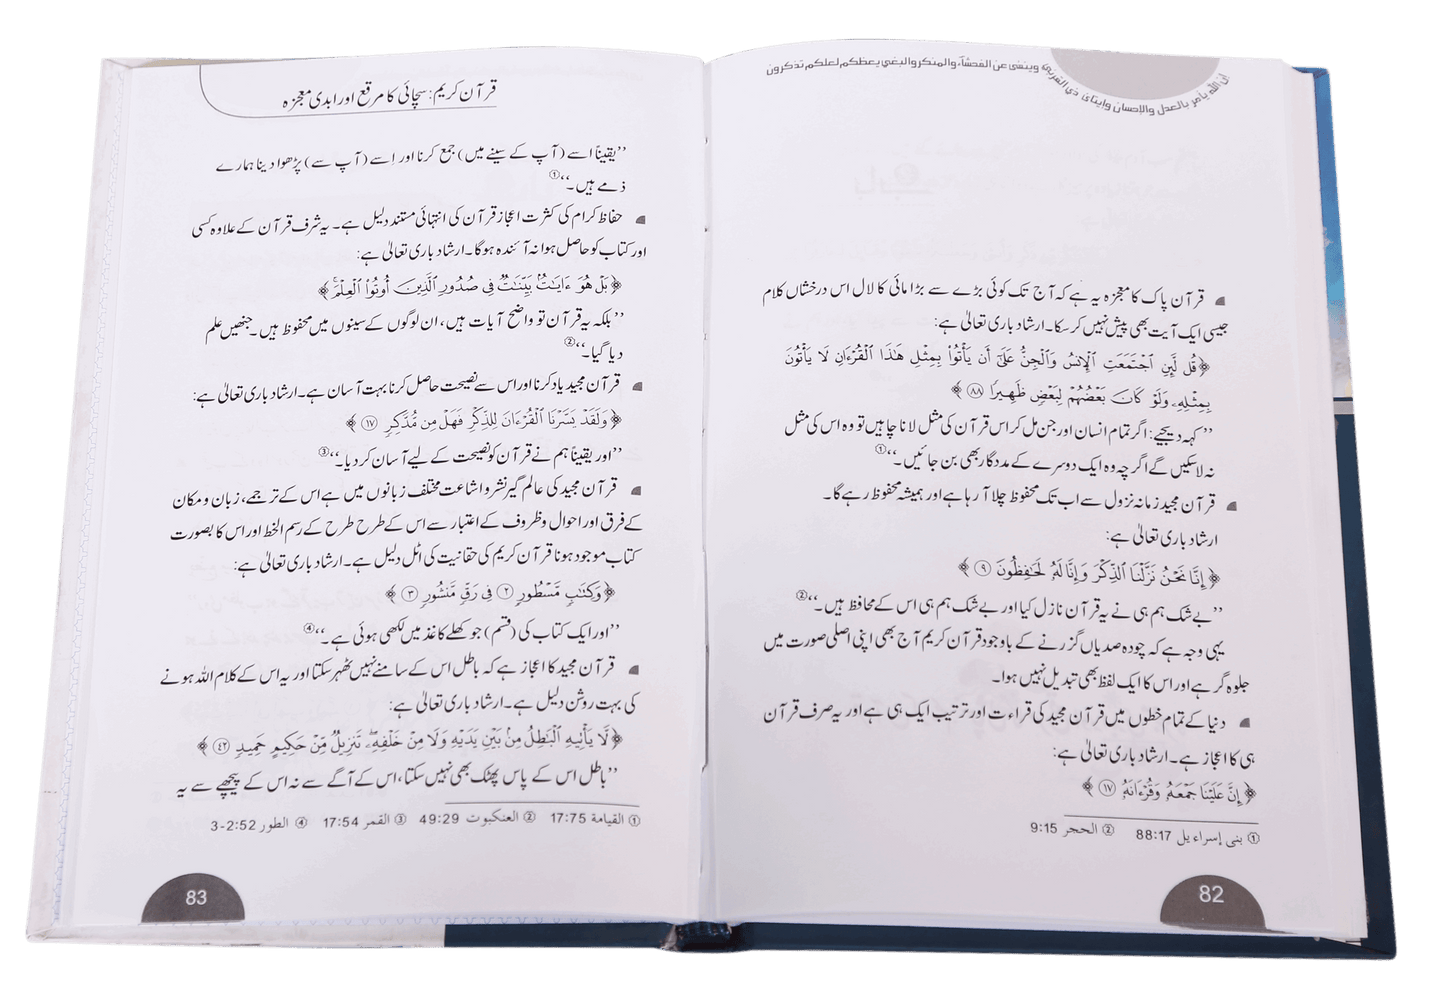 إن الله يأمر بالعدل والإحسان وإيتائ ذي القربى وينهى عن الفحشآء والمنكر والبغي يعظكم لعلكم تذكرون
قرآن پاک کا معجزہ یہ ہے کہ آج تک کوئی بڑے سے بڑا مائی کا لال اس درخشاں کلام
جیسی ایک آیت بھی پیش نہیں کر سکا۔ ارشاد باری تعالیٰ ہے:
﴿قُل لَّئِنِ ٱجْتَمَعَتِ ٱلْإِنسُ وَٱلْجِنُّ عَلَىٰٓ أَن يَأْتُوا۟ بِمِثْلِ هَـٰذَا ٱلْقُرْءَانِ لَا يَأْتُونَ
بِمِثْلِهِۦ وَلَوْ كَانَ بَعْضُهُمْ لِبَعْضٍ ظَهِيرًا ٨٨﴾
’’کہہ دیجیے: اگر تمام انسان اور جن مل کر اس قرآن کی مثل لانا چاہیں تو وہ اس کی مثل
نہ لاسکیں گے اگرچہ وہ ایک دوسرے کے مددگار بھی بن جائیں۔‘‘①
قرآن مجید زمانہ نزول سے اب تک محفوظ چلا آ رہا ہے اور ہمیشہ محفوظ رہے گا۔
ارشاد باری تعالیٰ ہے:
﴿إِنَّا نَحْنُ نَزَّلْنَا ٱلذِّكْرَ وَإِنَّا لَهُۥ لَحَـٰفِظُونَ ٩﴾
’’بے شک ہم ہی نے یہ قرآن نازل کیا اور بے شک ہم ہی اس کے محافظ ہیں۔‘‘②
یہی وجہ ہے کہ چودہ صدیاں گزرنے کے باوجود قرآن کریم آج بھی اپنی اصلی صورت میں
جلوہ گر ہے اور اس کا ایک لفظ بھی تبدیل نہیں ہوا۔
دنیا کے تمام خطوں میں قرآن مجید کی قراءت اور ترتیب ایک ہی ہے اور یہ صرف قرآن
ہی کا اعجاز ہے۔ ارشاد باری تعالیٰ ہے:
﴿إِنَّ عَلَيْنَا جَمْعَهُۥ وَقُرْءَانَهُۥ ١٧﴾
① بنی إسراءیل 88:17 ② الحجر 9:15
82
قرآن کریم: سچائی کا مرقع اور ابدی معجزہ
’’یقیناً اسے (آپ کے سینے میں) جمع کرنا اور اسے (آپ سے) پڑھوا دینا ہمارے
ذمے ہیں۔‘‘①
حفاظ کرام کی کثرت اعجاز قرآن کی انتہائی مستند دلیل ہے۔ یہ شرف قرآن کے علاوہ کسی
اور کتاب کو حاصل ہوا نہ آئندہ ہوگا۔ ارشاد باری تعالیٰ ہے:
﴿بَلْ هُوَ ءَايَـٰتٌۢ بَيِّنَـٰتٌ فِى صُدُورِ ٱلَّذِينَ أُوتُوا۟ ٱلْعِلْمَ ۚ﴾
’’بلکہ یہ قرآن تو واضح آیات ہیں، ان لوگوں کے سینوں میں محفوظ ہیں۔ جنھیں علم
دیا گیا۔‘‘②
قرآن مجید یاد کرنا اور اس سے نصیحت حاصل کرنا بہت آسان ہے۔ ارشاد باری تعالیٰ ہے:
﴿وَلَقَدْ يَسَّرْنَا ٱلْقُرْءَانَ لِلذِّكْرِ فَهَلْ مِن مُّدَّكِرٍ ١٧﴾
’’اور یقیناً ہم نے قرآن کو نصیحت کے لیے آسان کر دیا۔‘‘③
قرآن مجید کی عالم گیر نشر و اشاعت مختلف زبانوں میں ہے اس کے ترجمے، زبان و مکان
کے فرق اور احوال و ظروف کے اعتبار سے اس کے طرح طرح کے رسم الخط اور اس کا بصورت
کتاب موجود ہونا قرآن کریم کی حقانیت کی اٹل دلیل ہے۔ ارشاد باری تعالیٰ ہے:
﴿وَكِتَـٰبٍ مَّسْطُورٍ ٢ فِى رَقٍّ مَّنشُورٍ ٣﴾
’’اور ایک کتاب کی (قسم) جو کھلے کاغذ میں لکھی ہوئی ہے۔‘‘④
قرآن مجید کا اعجاز ہے کہ باطل اس کے سامنے نہیں ٹھہر سکتا اور یہ اس کے کلام اللہ ہونے
کی بہت روشن دلیل ہے۔ ارشاد باری تعالیٰ ہے:
﴿لَّا يَأْتِيهِ ٱلْبَـٰطِلُ مِنۢ بَيْنِ يَدَيْهِ وَلَا مِنْ خَلْفِهِۦ ۖ تَنزِيلٌ مِّنْ حَكِيمٍ حَمِيدٍ ٤٢﴾
’’باطل اس کے پاس پھٹک بھی نہیں سکتا، اس کے آگے سے نہ اس کے پیچھے سے یہ
① القیامة 17:75 ② العنکبوت 49:29 ③ القمر 17:54 ④ الطور 3-2:52
83